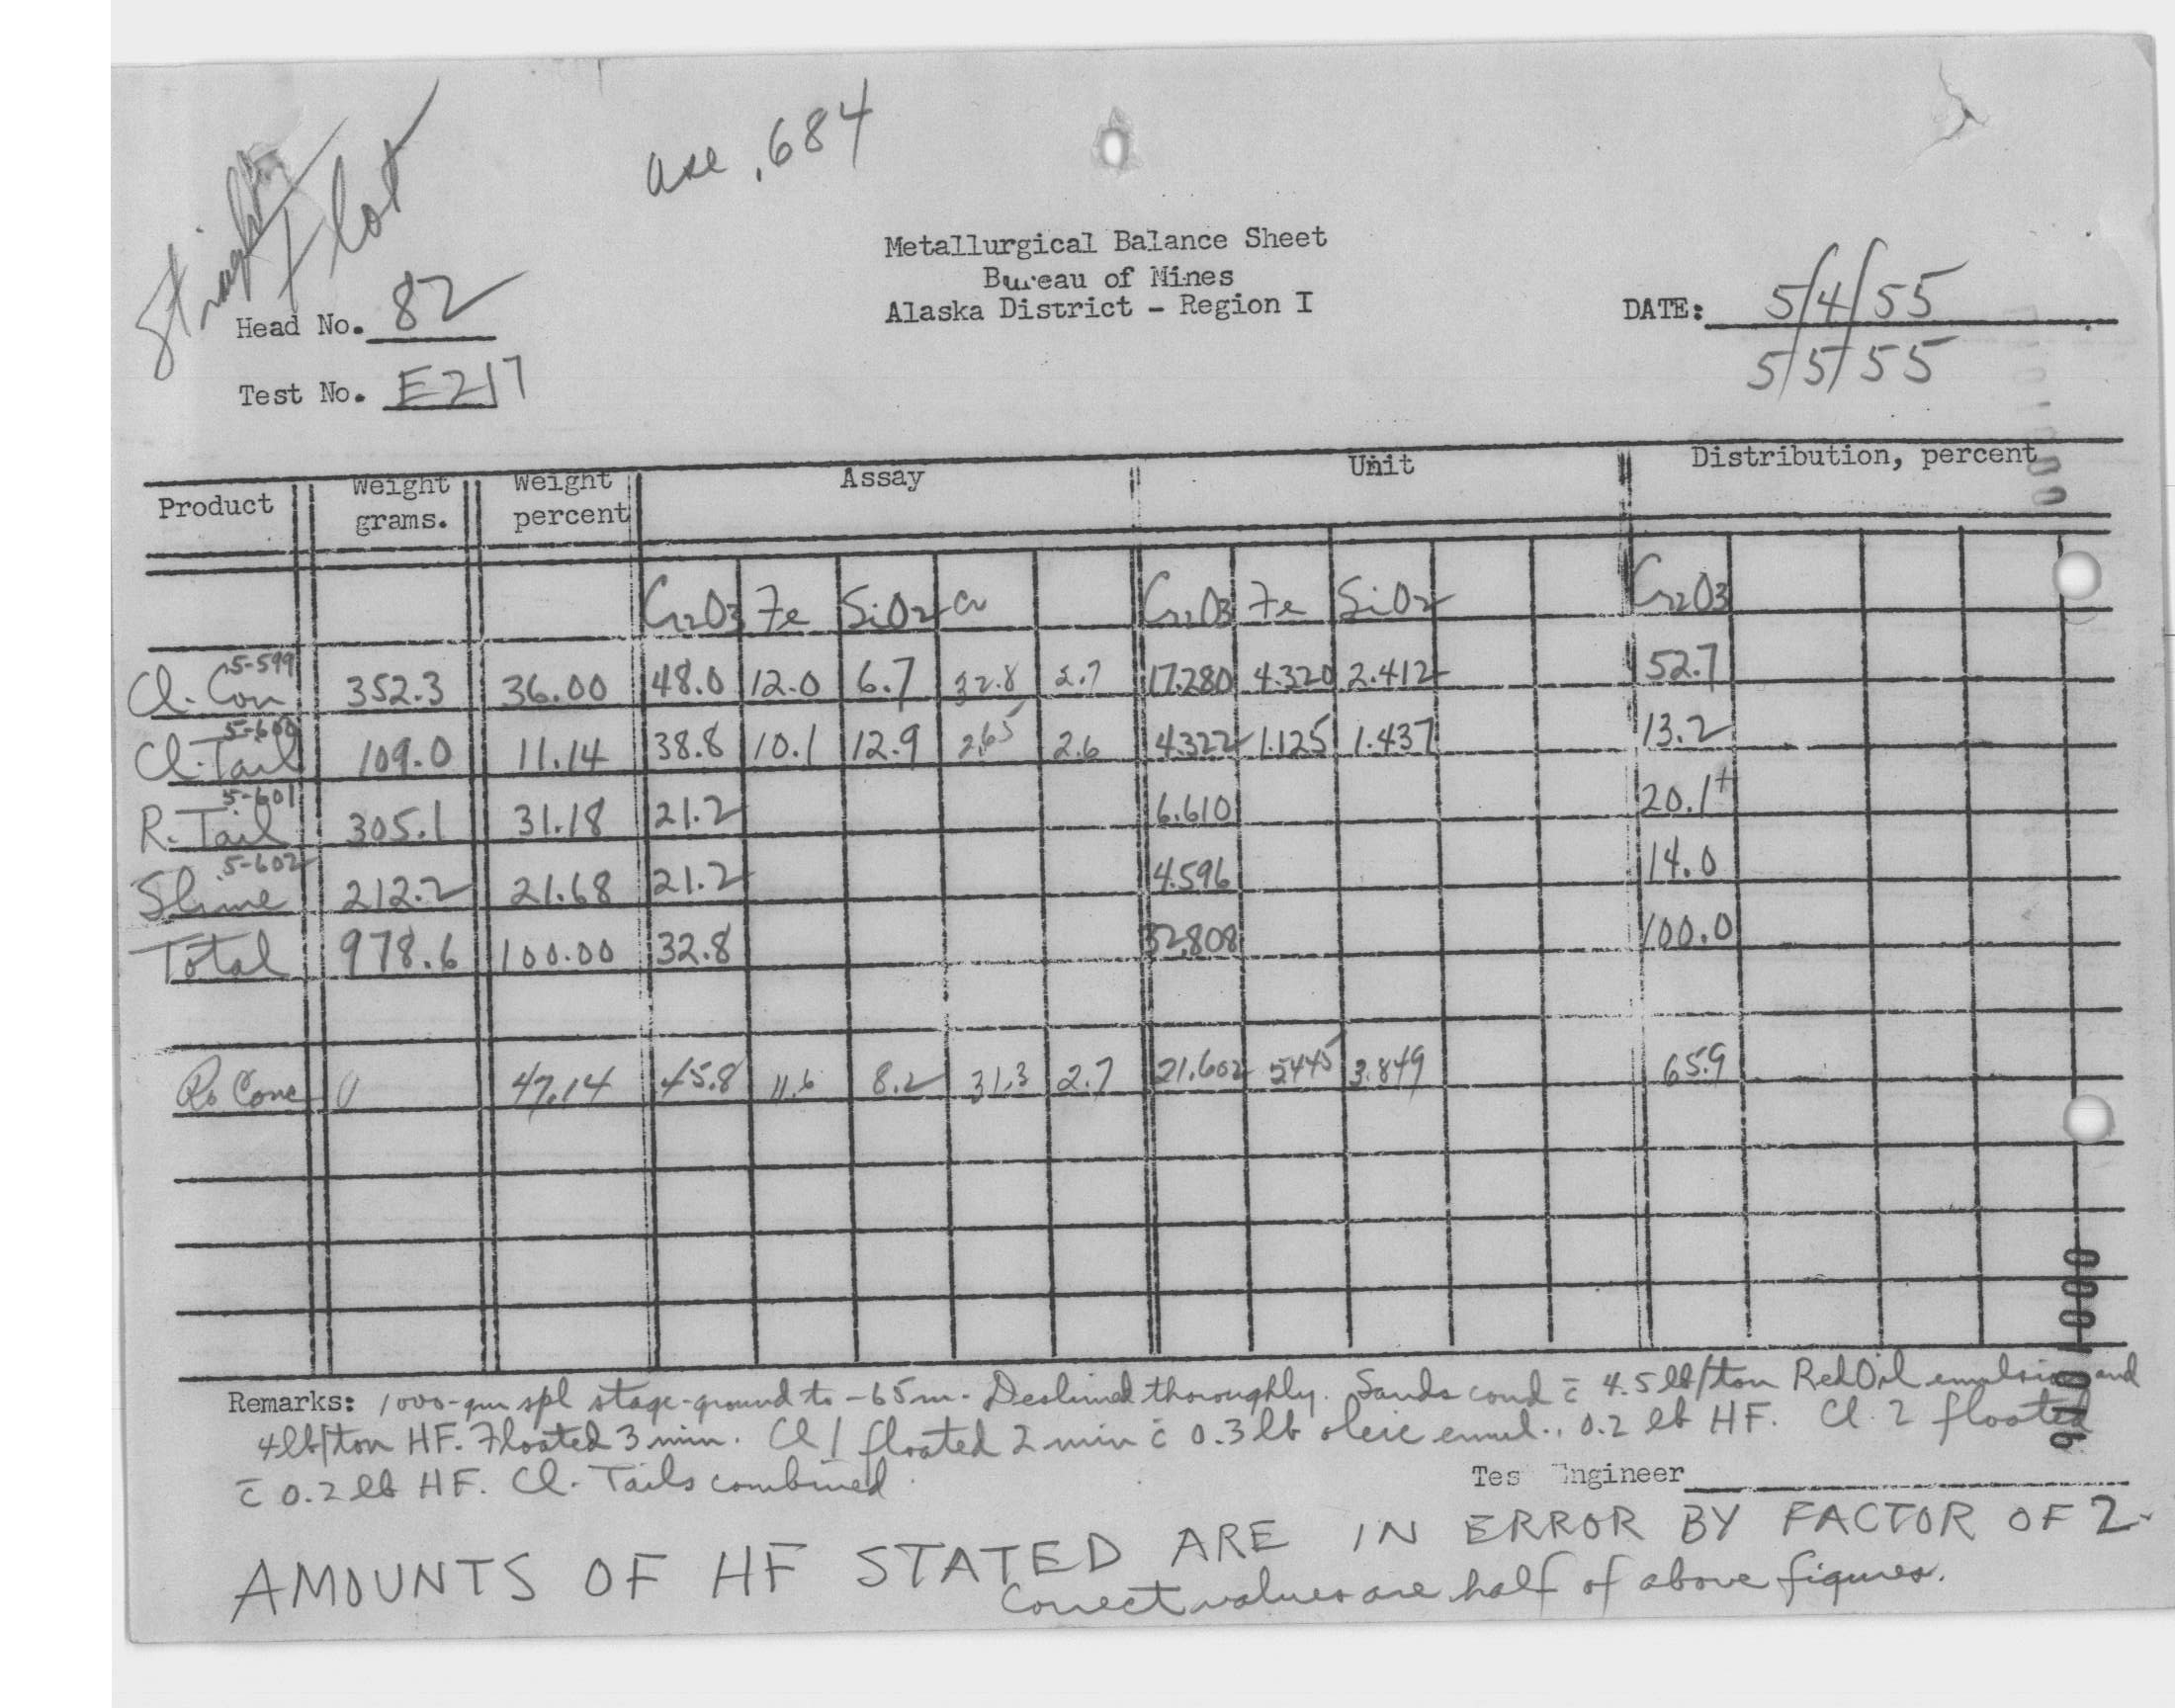 Straight
Flot
use .684
Metallurgical Balance Sheet
Bureau of Mines
Alaska District - Region I
Head No. 82
DATE: 5/4/55
5/5/55
Test No. E217
Product Weight grams. Weight percent Assay Unit Distribution, percent
Cr2O3 Fe SiO2 Cr Cr2O3 Fe SiO2 Cr2O3
5-599
Cl. Con 352.3 36.00 48.0 12.0 6.7 32.8 2.7 17.280 4.320 2.412 52.7
5-600
Cl. Tail 109.0 11.14 38.8 10.1 12.9 26.5 2.6 4.322 1.125 1.437 13.2
5-601
R. Tail 305.1 31.18 21.2 6.610 20.1+
5-602
Slime 212.2 21.68 21.2 4.596 14.0
Total 978.6 100.00 32.8 32.808 100.0
Ro Conc 47.14 45.8 11.6 8.2 31.3 2.7 21.602 5445 3.849 65.9
Remarks: 1000-gm spl stage-ground to -65m. Deslimed thoroughly. Sands cond c̄ 4.5 lb/ton Red Oil emulsion and
4 lb/ton HF. Floated 3 min. Cl 1 floated 2 min c̄ 0.3 lb oleic emul., 0.2 lb HF. Cl. 2 floated
c̄ 0.2 lb HF. Cl. Tails combined.
Tes Engineer
AMOUNTS OF HF STATED ARE IN ERROR BY FACTOR OF 2.
Correct values are half of above figures.